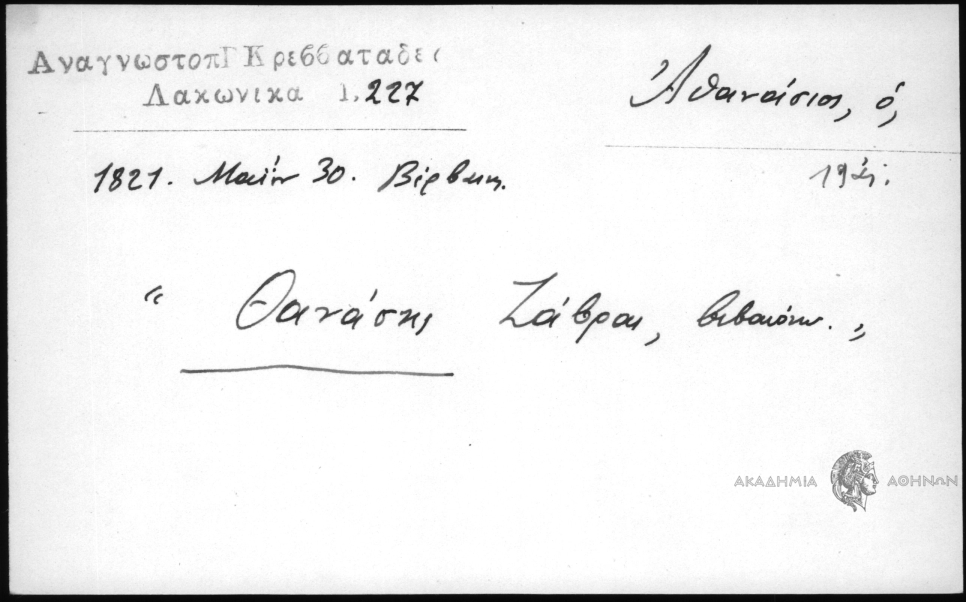 ΑναγνωστοπΓ Κρεββαταδες
Λακωνικα 1, 227
Ἀθανάσιος, ὁ,
1821. Μαΐου 30. Βέρβενα.
“ Θανάσης Ζάβρας, βεβαιόνω. „
ΑΚΑΔΗΜΙΑ ΑΘΗΝΩΝ